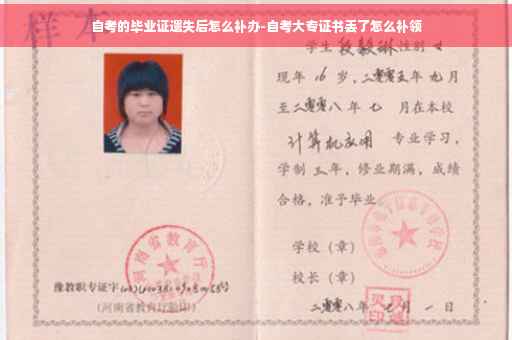 样本
自考的毕业证遗失后怎么补办-自考大专证书丢了怎么补领
学生段毅琳性别女
现年16岁,二零零五年九月
至二零零八年七月在本校
计算机应用 专业学习,
学制三年,修业期满,成绩
合格,准予毕业
学校(章)
校长(章)
二零零八年七月一日
河南省教育厅
豫教职专证字
(河南省教育厅验印)